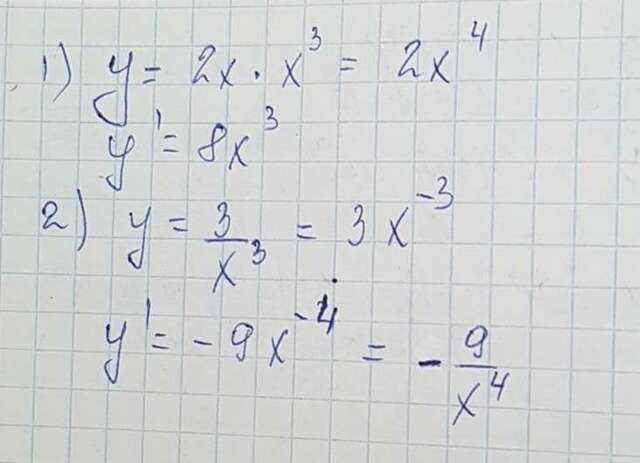 1) y = 2x · x³ = 2x⁴
y' = 8x³
2) y = 3/x³ = 3x⁻³
y' = -9x⁻⁴ = - 9/x⁴